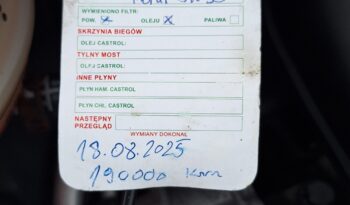 WYMIENIONO FILTR:
POW. x OLEJU x PALIWA
SKRZYNIA BIEGÓW
OLEJ CASTROL:
TYLNY MOST
OLEJ CASTROL:
INNE PŁYNY
PŁYN HAM. CASTROL
PŁYN CHŁ. CASTROL
NASTĘPNY
PRZEGLĄD
WYMIANY DOKONAŁ
18.08.2025
190000 km